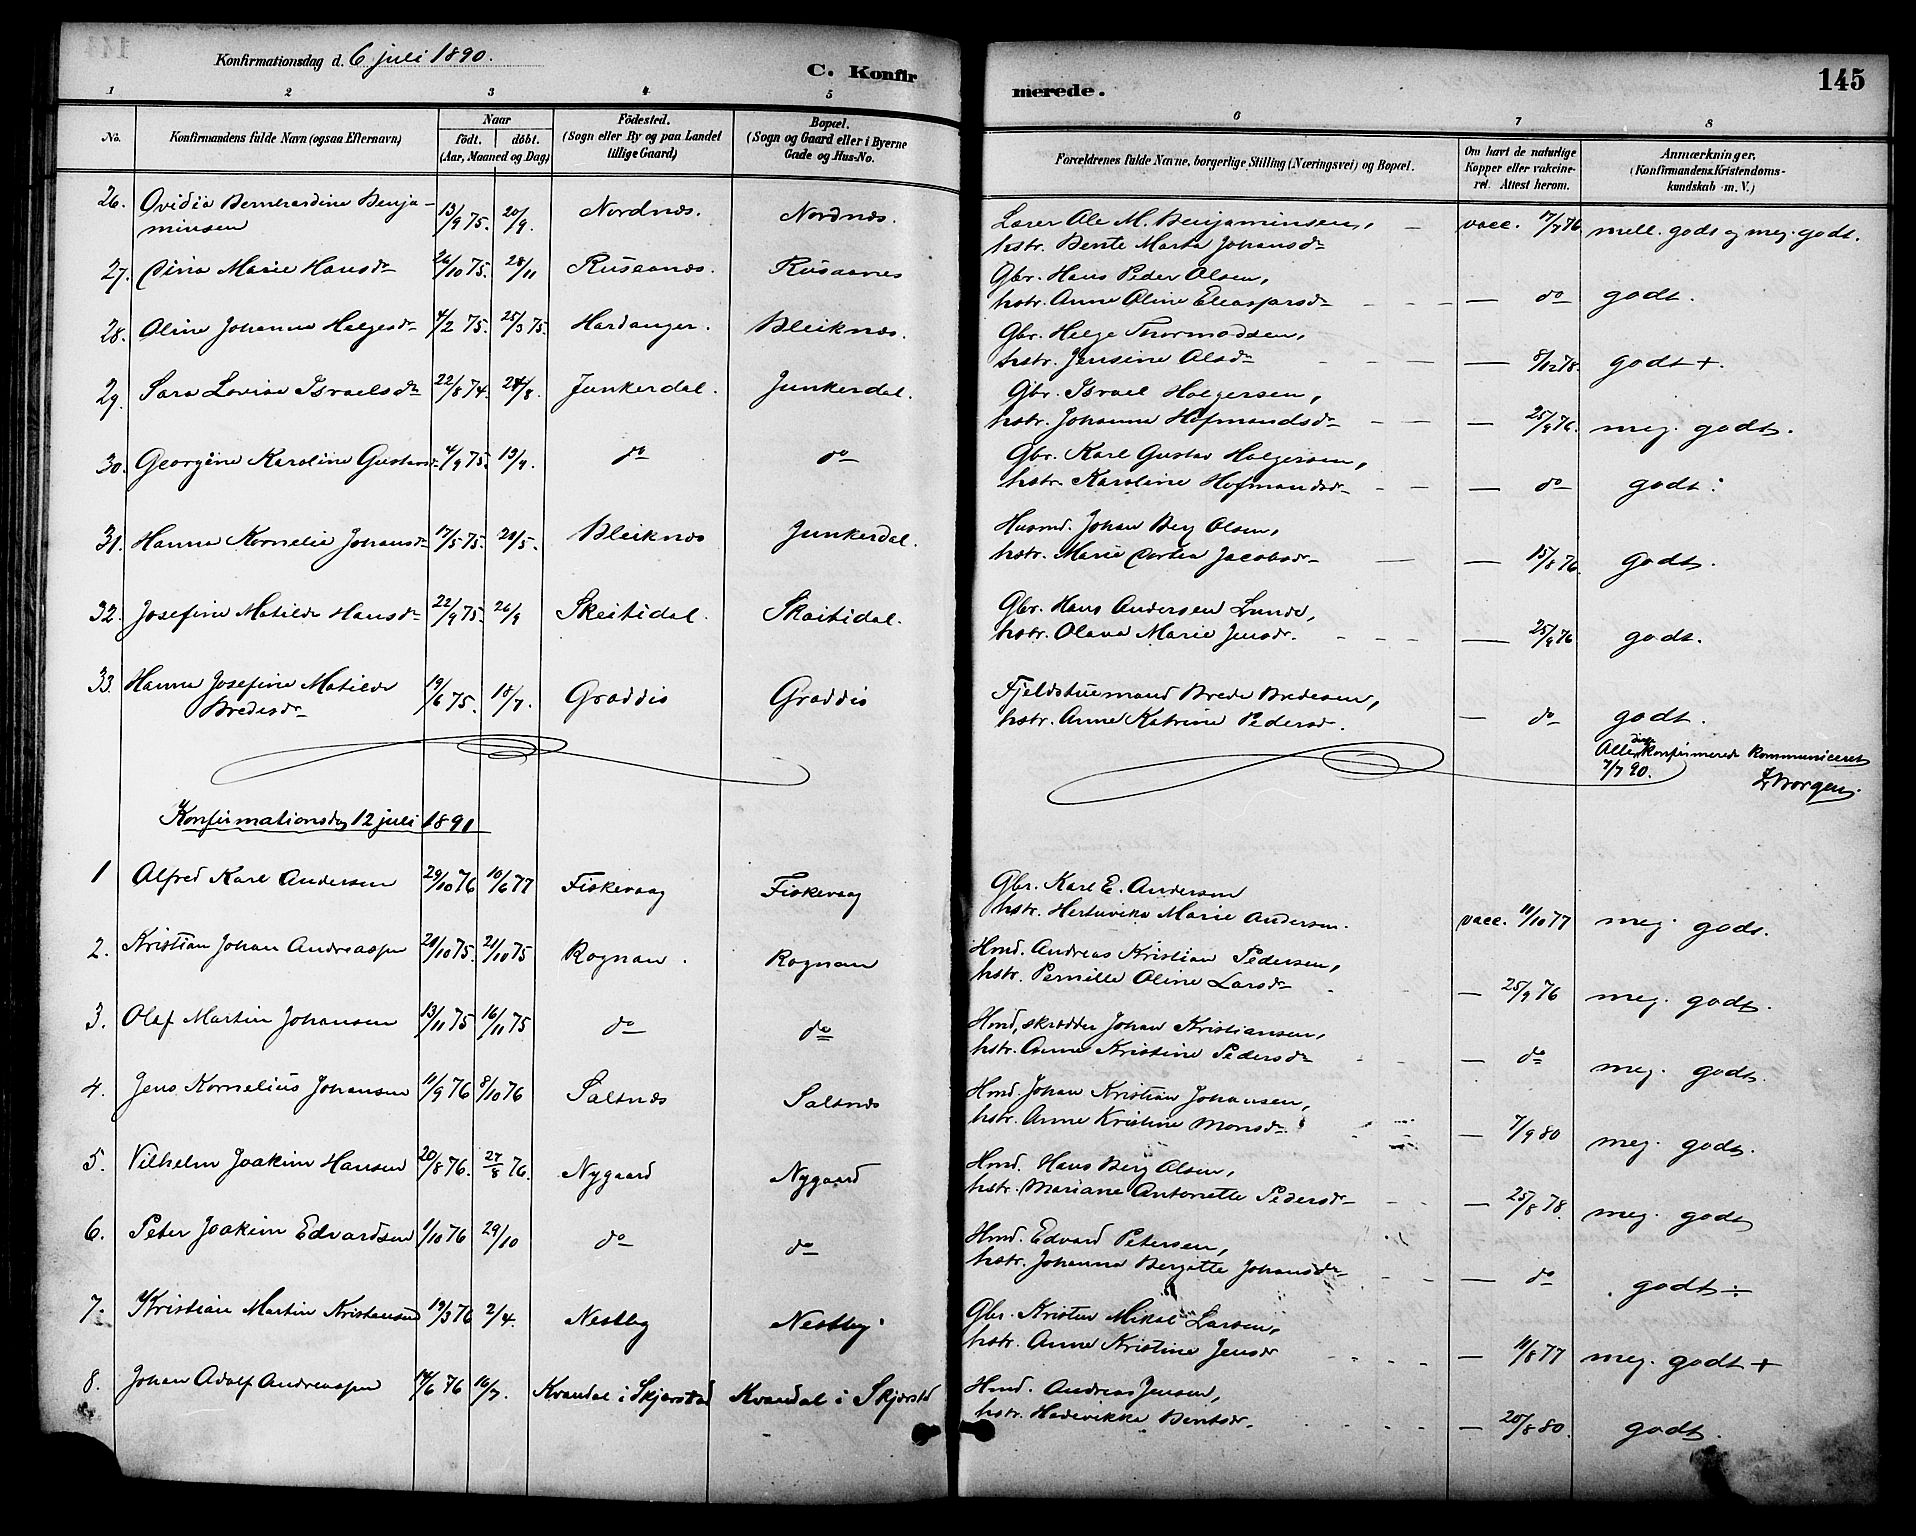 Konfirmationsdag d. 6 juli 1890.
C. Konfir
merede.
145
1 2 3 4 5 6 7 8
No. Konfirmandens fulde Navn (ogsaa Efternavn) Naar födt. döbt. (Aar, Maaned og Dag) Födested. (Sogn eller By og paa Landet tillige Gaard) Bopæl. (Sogn og Gaard eller i Byerne Gade og Hus-No. Forældrenes fulde Navne, borgerlige Stilling (Næringsvei) og Bopæl. Om havt de naturlige Kopper eller vakcineret. Attest herom. Anmærkninger. (Konfirmandens Kristendomskundskab m. V.)
26. Ovidia Bernhardine Benja- 13/9 75. 20/9. Nordnæs. Nordnæs. Lærer Ole M. Benjaminsen, vacc. 17/7 76 mell. godt og meg. godt.
minsen hstr. Bente Marta Johansd
27. Marie Hansd 26/10 75. 28/11 Rusaanæs. Rusaanes Gbr. Hans Peder Olsen,
hstr. Anne Oline Eleasarsd — do godt.
28. Oline Johanna Helgesd 4/2 75. 25/3 75. Hardanger. Bleiknæs. Gbr. Helge Thormodsen,
hstr. Jensine Olsd — 8/12 78. godt +.
29. Sara Lovise Israelsd 22/8 74. 28/8. Junkerdal. Junkerdal. Gbr. Israel Holgersen,
hstr. Johanna Hofmandsd — 25/9 76. meg. godt.
30. Georgine Karoline Gustavsd 4/9 75. 13/9. do do Gbr. Karl Gustav Holgersen,
hstr. Karoline Hofmandsd — do godt:
31. Hanna Kornelie Johansd 17/5 75. 28/5. Bleiknæs Junkerdal. Husmd. Johan Berg Olsen,
hstr. Marie Jacobsd — 15/8 76. godt.
32. Josefine Matilde Hansd 22/9 75. 26/9 Skeitidal. Skaitidal. Gbr. Hans Andersen Lunde,
hstr. Olava Marie Jensd. — 25/9 76 godt.
33. Hanna Josefine Matilde 19/6 75. 18/7. Graddis Graddis Fjeldstuemand Brede Bredesen,
Bredesd hstr. Anne Katrine Pedersd. — do godt.
Alle disse konfirmerede kommuniceret
7/7 90.
Konfirmationsdag 12 juli 1891
1 Alfred Karl Andersen 29/10 76 10/6 77 Fiskevaag Fiskevaag Gbr. Karl E. Andersen
hstr. Marie Andersen. vacc. 11/10 77 meg. godt.
2. Kristian Johan Andreassen 20/10 75. 21/10 75 Rognan. Rognan Hmd. Andreas Kristian Pedersen,
hstr. Pernille Oline Larsd — 25/9 76 meg. godt.
3. Olaf Martin Johansen 13/11 75 16/11 75 do do Hmd, skrædder Johan Kristiansen,
hstr. Anne Kristine Pedersd — do meg. godt.
4. Jens Kornelius Johansen 11/9 76 8/10 76 Saltnæs Saltnæs Hmd. Johan Kristian Johansen,
hstr. Anne Kristine Monsd. — 7/9 80 meg. godt.
5. Vilhelm Joakim Hansen 20/8 76. 27/8 76. Nygaard Nygaard Hmd. Hans Berg Olsen,
hstr. Mariane Antonette Pedersd — 25/8 78. meg. godt
6. Peter Joakim Edvardsen 1/10 76 29/10 do do Hmd. Edvard Petersen,
hstr. Johanna Bergitte Johansd — do godt ÷
7. Kristian Martin Kristensen 19/3 76 2/4. Nestby Nestby Gbr. Kristen Mikal Larsen,
hstr. Anne Kristine Jensd — 11/8 77 meg. godt +
8. Johan Adolf Andreassen 14/6 76 16/7. Kvandal i Skjerstad Kvandal i Skjerstd Hmd. Andreas Jensen,
hstr. Hedevikke Bentsd — 20/8 80. godt.